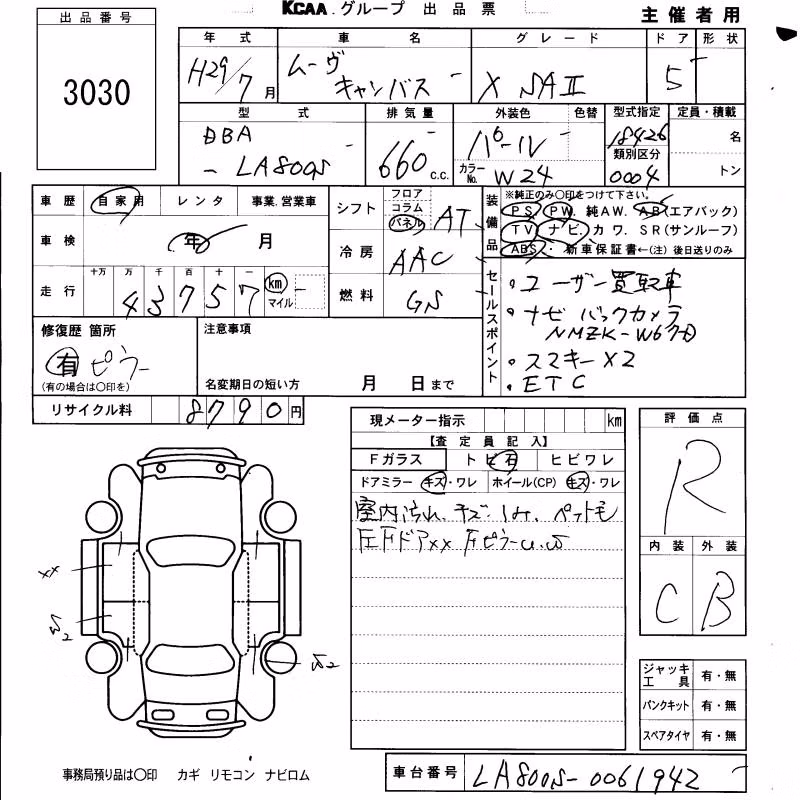 KCAA.グループ 出品票
主催者用
出品番号
3030
年式 車名 グレード ドア 形状
H29/7月 ムーヴ キャンバス X SAⅡ 5
型式 排気量 外装色 色替 型式指定 定員・積載
DBA - LA800S 660 c.c. パール カラーNo. W24 18426 名
類別区分
0004 トン
車歴 自家用 レンタ 事業.営業車
車検 年 月
走行 十万 万 千 百 十 一
43757 km マイル
シフト フロア コラム パネル AT
冷房 AAC
燃料 GS
装備品
※純正のみ○印をつけて下さい。
PS. PW. 純AW. AB(エアバック)
TV ナビ. カワ. SR(サンルーフ)
ABS. 新車保証書←(注)後日送りのみ
セールスポイント
・ユーザー買取車
・ナビ バックカメラ
NMZK-W67D
・スマキーX2
・ETC
修復歴 箇所
有 ピラー
(有の場合は○印を)
注意事項
名変期日の短い方 月 日まで
リサイクル料 8790円
現メーター指示 km
【査定員記入】
Fガラス トビ石 ヒビワレ
ドアミラー キズ・ワレ ホイール(CP) キズ・ワレ
室内汚れ、キズ・シミ、ペット毛
左FドアXX Fピラー
評価点
R
内装 外装
C B
XX
ジャッキ工具 有・無
パンクキット 有・無
スペアタイヤ 有・無
事務局預り品は○印 カギ リモコン ナビロム
車台番号 LA800S-0061942